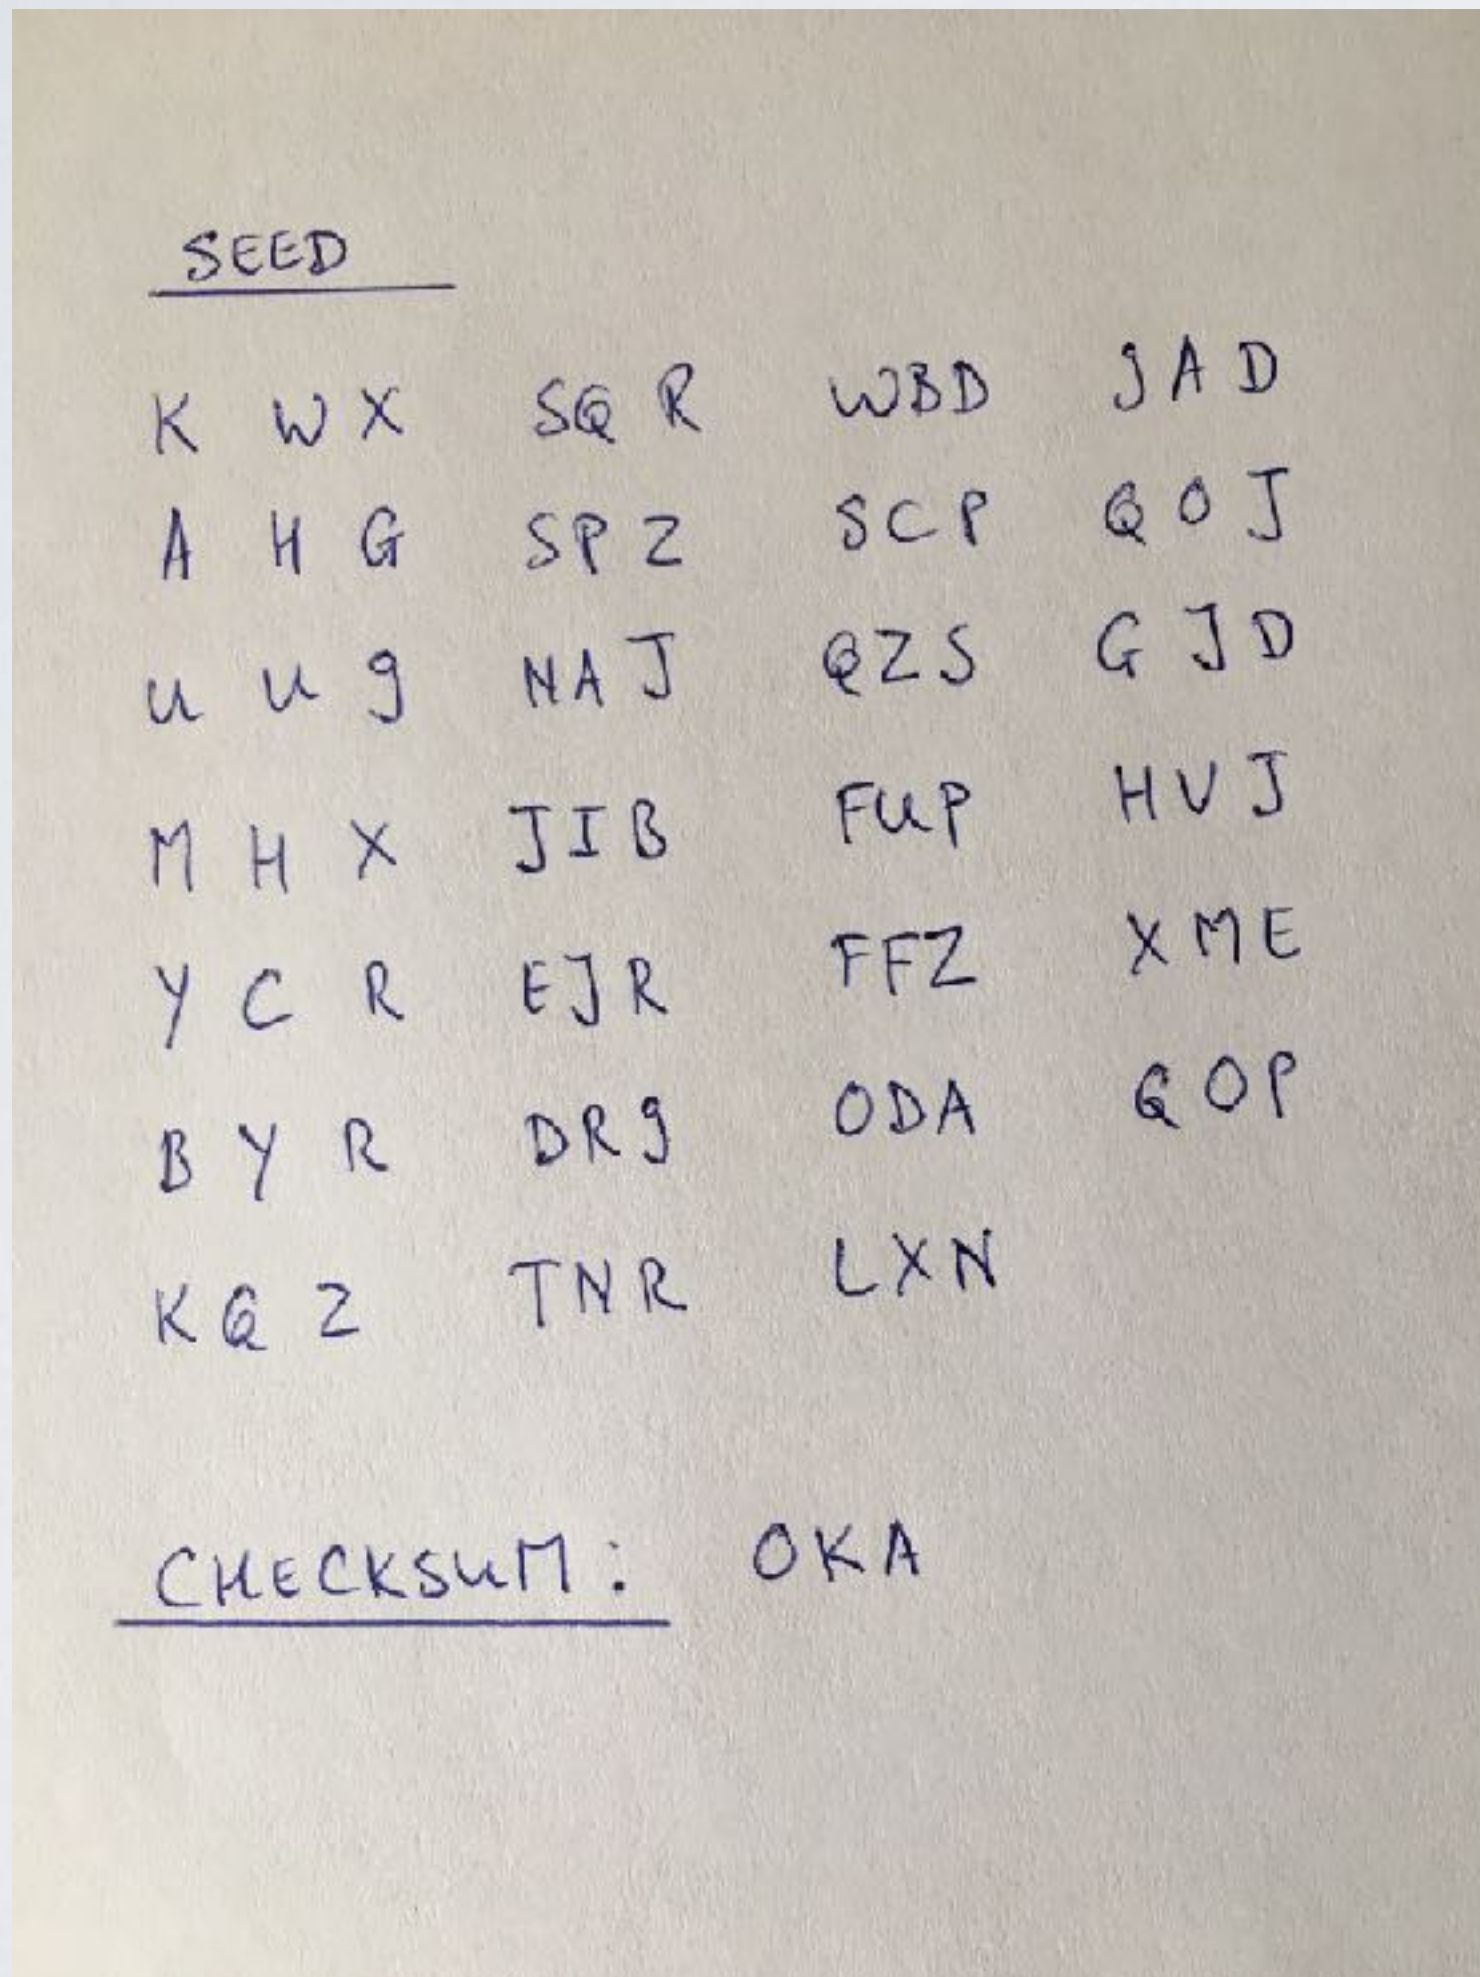 SEED
K W X SQ R WBD 9 A D
A H G SP Z SCP Q O J
U U 9 NA J QZS G J D
M H X JIB FUP H V J
Y C R EJR FFZ X M E
B Y R DR9 ODA Q O P
K Q Z TNR LXN
CHECKSUM: OKA